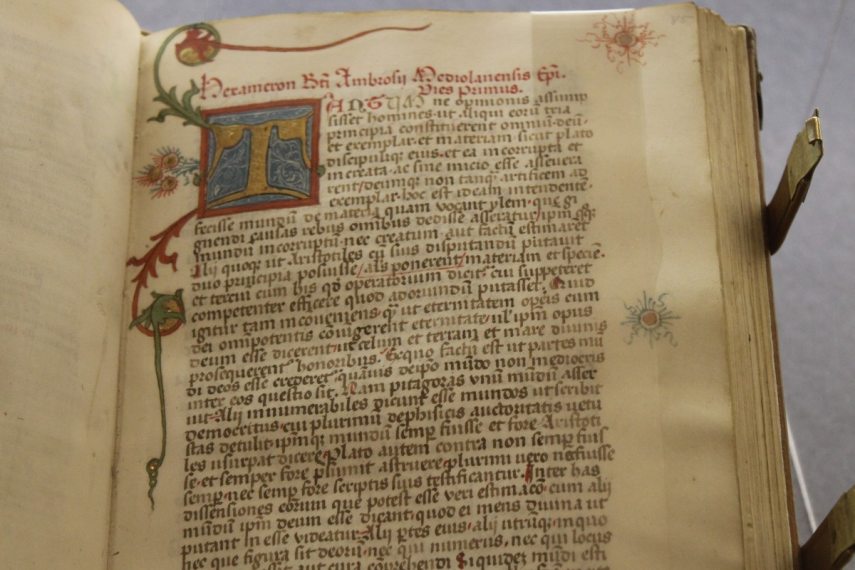 Hexameron Bti Ambrosii Mediolanensis Epi.
Dies Primus.
TANGUAM ne opinionis assump
sisset homines ut aliqui eorū tria
principia constituerent omniū deū
et exemplar et materiam sicut plato
discipulique eius et ea incorrupta et
increata ac sine inicio esse assevera
rent deumque non tanqȝ artificem ad
exemplar hoc est ideam intendentē
fecisse mundū de materia quam vocant ylem que gi
gnendi causas rebus omnibus dedisse asseratur ipm
mundū incorruptū nec creatum aut factū estimaret
Alii quoque ut Aristotiles cū suis disputandū putavit
duo principia posuisse als ponerent materiam et speciē
et terciū cum his qd operatorium dicit cui suppeteret
competenter efficere quod adoriundū putasset Quid
igitur tam inconveniens qȝ ut eternitatem operis cum
dei omnipotentis coniugerent eternitate ul ipm opus
deum esse dicerent ut celum et terram et mare divinis
prosequerent honoribus Ex quo factū est ut partes mū
di deos esse crederet quāvis de ipo mūdo non mediocris
inter eos questio sit Nam pitagoras unū mūdū asser
uit Alii innumerabiles dicunt esse mundos ut scribit
democritus cui plurimū de phisicis auctoritatis vetu
stas detulit ipmqȝ mundū semp fuisse et fore Aristoti
les usurpat dicere Plato autem contra non semp fuis
se et semper fore psumit astruere plurimi vero nec fuisse
semp nec semp fore scriptis suis testificantur Inter has
dissensiones eorum que potest esse veri estimacō cum alii
mūdū ipm deum esse dicant quod ei mens divina ut
putant in esse videatur Alii ptes eius alii utrūqȝ in quo
nec que figura sit deorū nec qui numerus nec qui locus